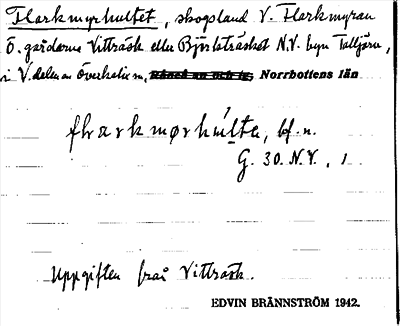 Flarkmyrhultet, skogsland V. Flarkmyran
Ö. gårdarna Vitträsk eller Björkträsket N.V. byn Talljärv,
i V. delen av Överkalix sn, Norrbottens län
flarkmørhúlte, bf. n.
G. 30. N.V. , 1
Uppgiften från Vitträsk.
EDVIN BRÄNNSTRÖM 1942.